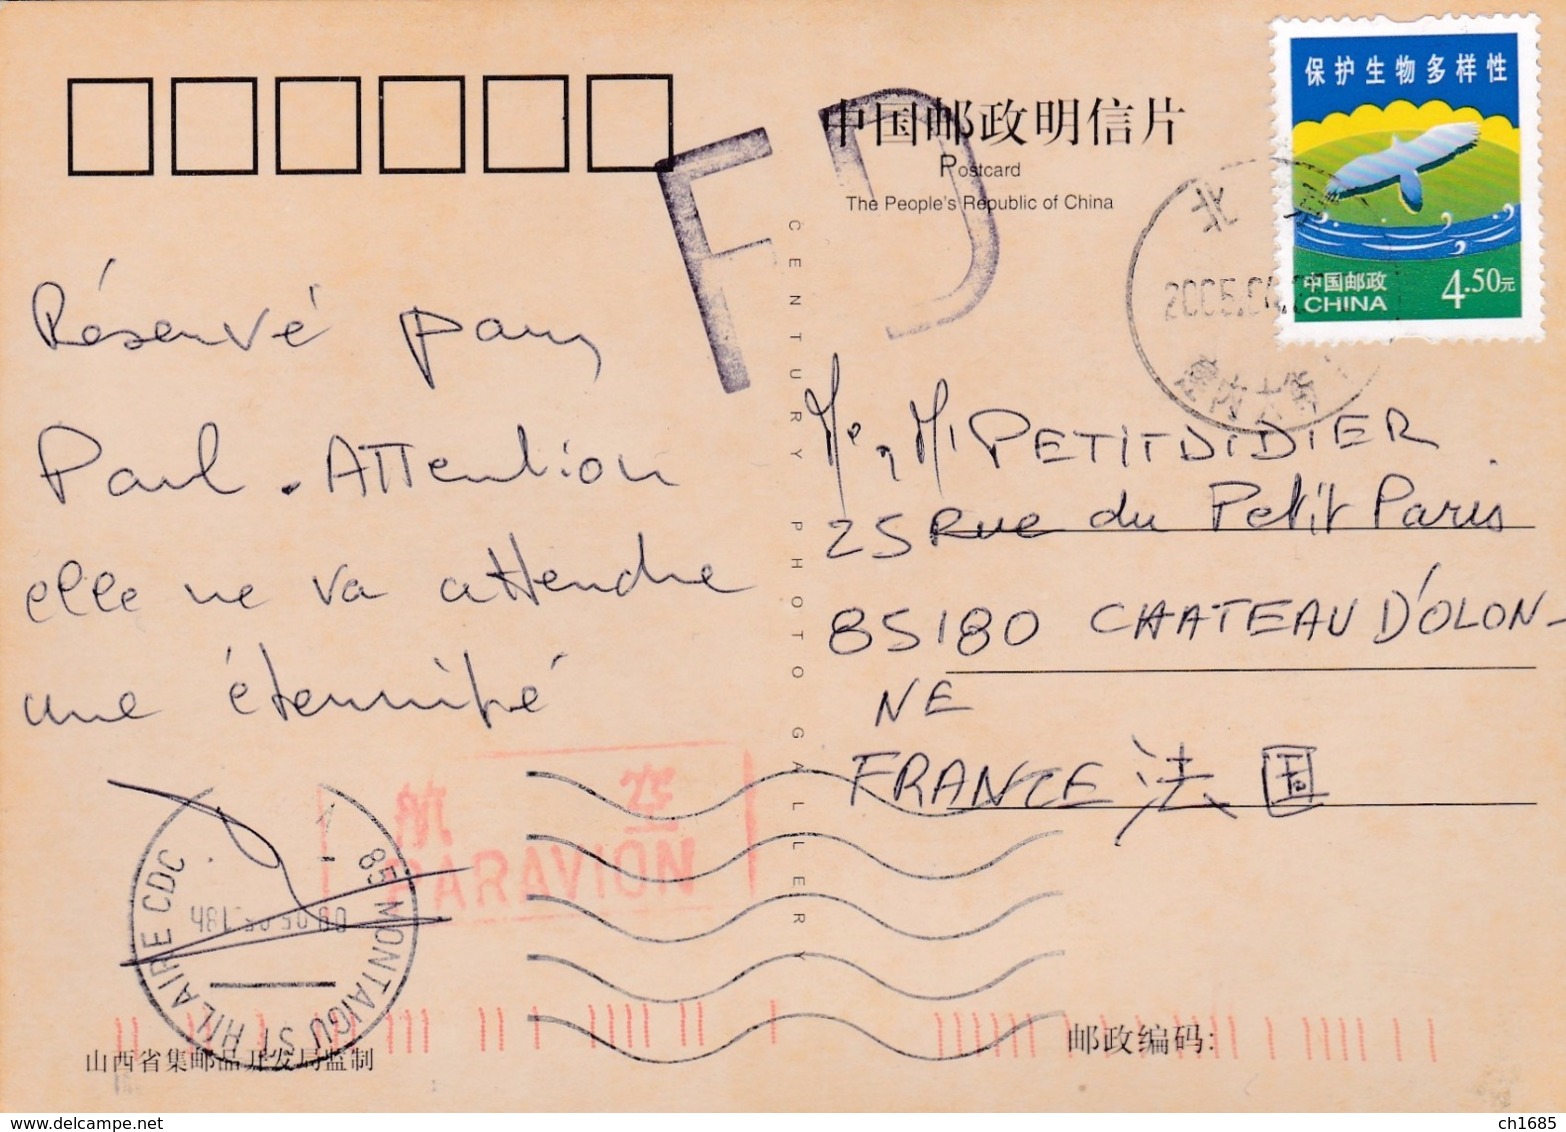 保护生物多样性
中国邮政
CHINA
4.50元
中国邮政明信片
Postcard
The People's Republic of China
北京
2005.0
F
CENTURY PHOTO GALLERY
Réservé pour
Paul. Attention
elle ne va attendre
une éternité
Me, Mr PETITDIDIER
25 Rue du Petit Paris
85180 CHATEAU D'OLON-
NE
FRANCE 法国
航空
PAR AVION
85 MONTAIGU ST HILAIRE CDC
山西省集邮品开发局监制
邮政编码:
www.delcampe.net
ch1685